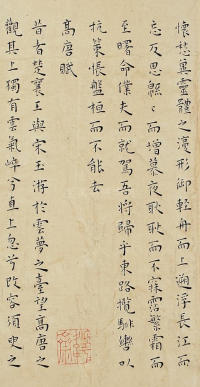 懷愁冀靈體之復形御輕舟而上遡浮長江而
忘反思緜々而增慕夜耿耿而不寐霑繁霜而
至曙命僕夫而就駕吾將歸乎東路攬騑轡以
抗策悵盤桓而不能去
高唐賦
昔者楚襄王與宋玉游於雲夢之臺望高唐之
觀其上獨有雲氣崪兮直上忽兮改容須臾之